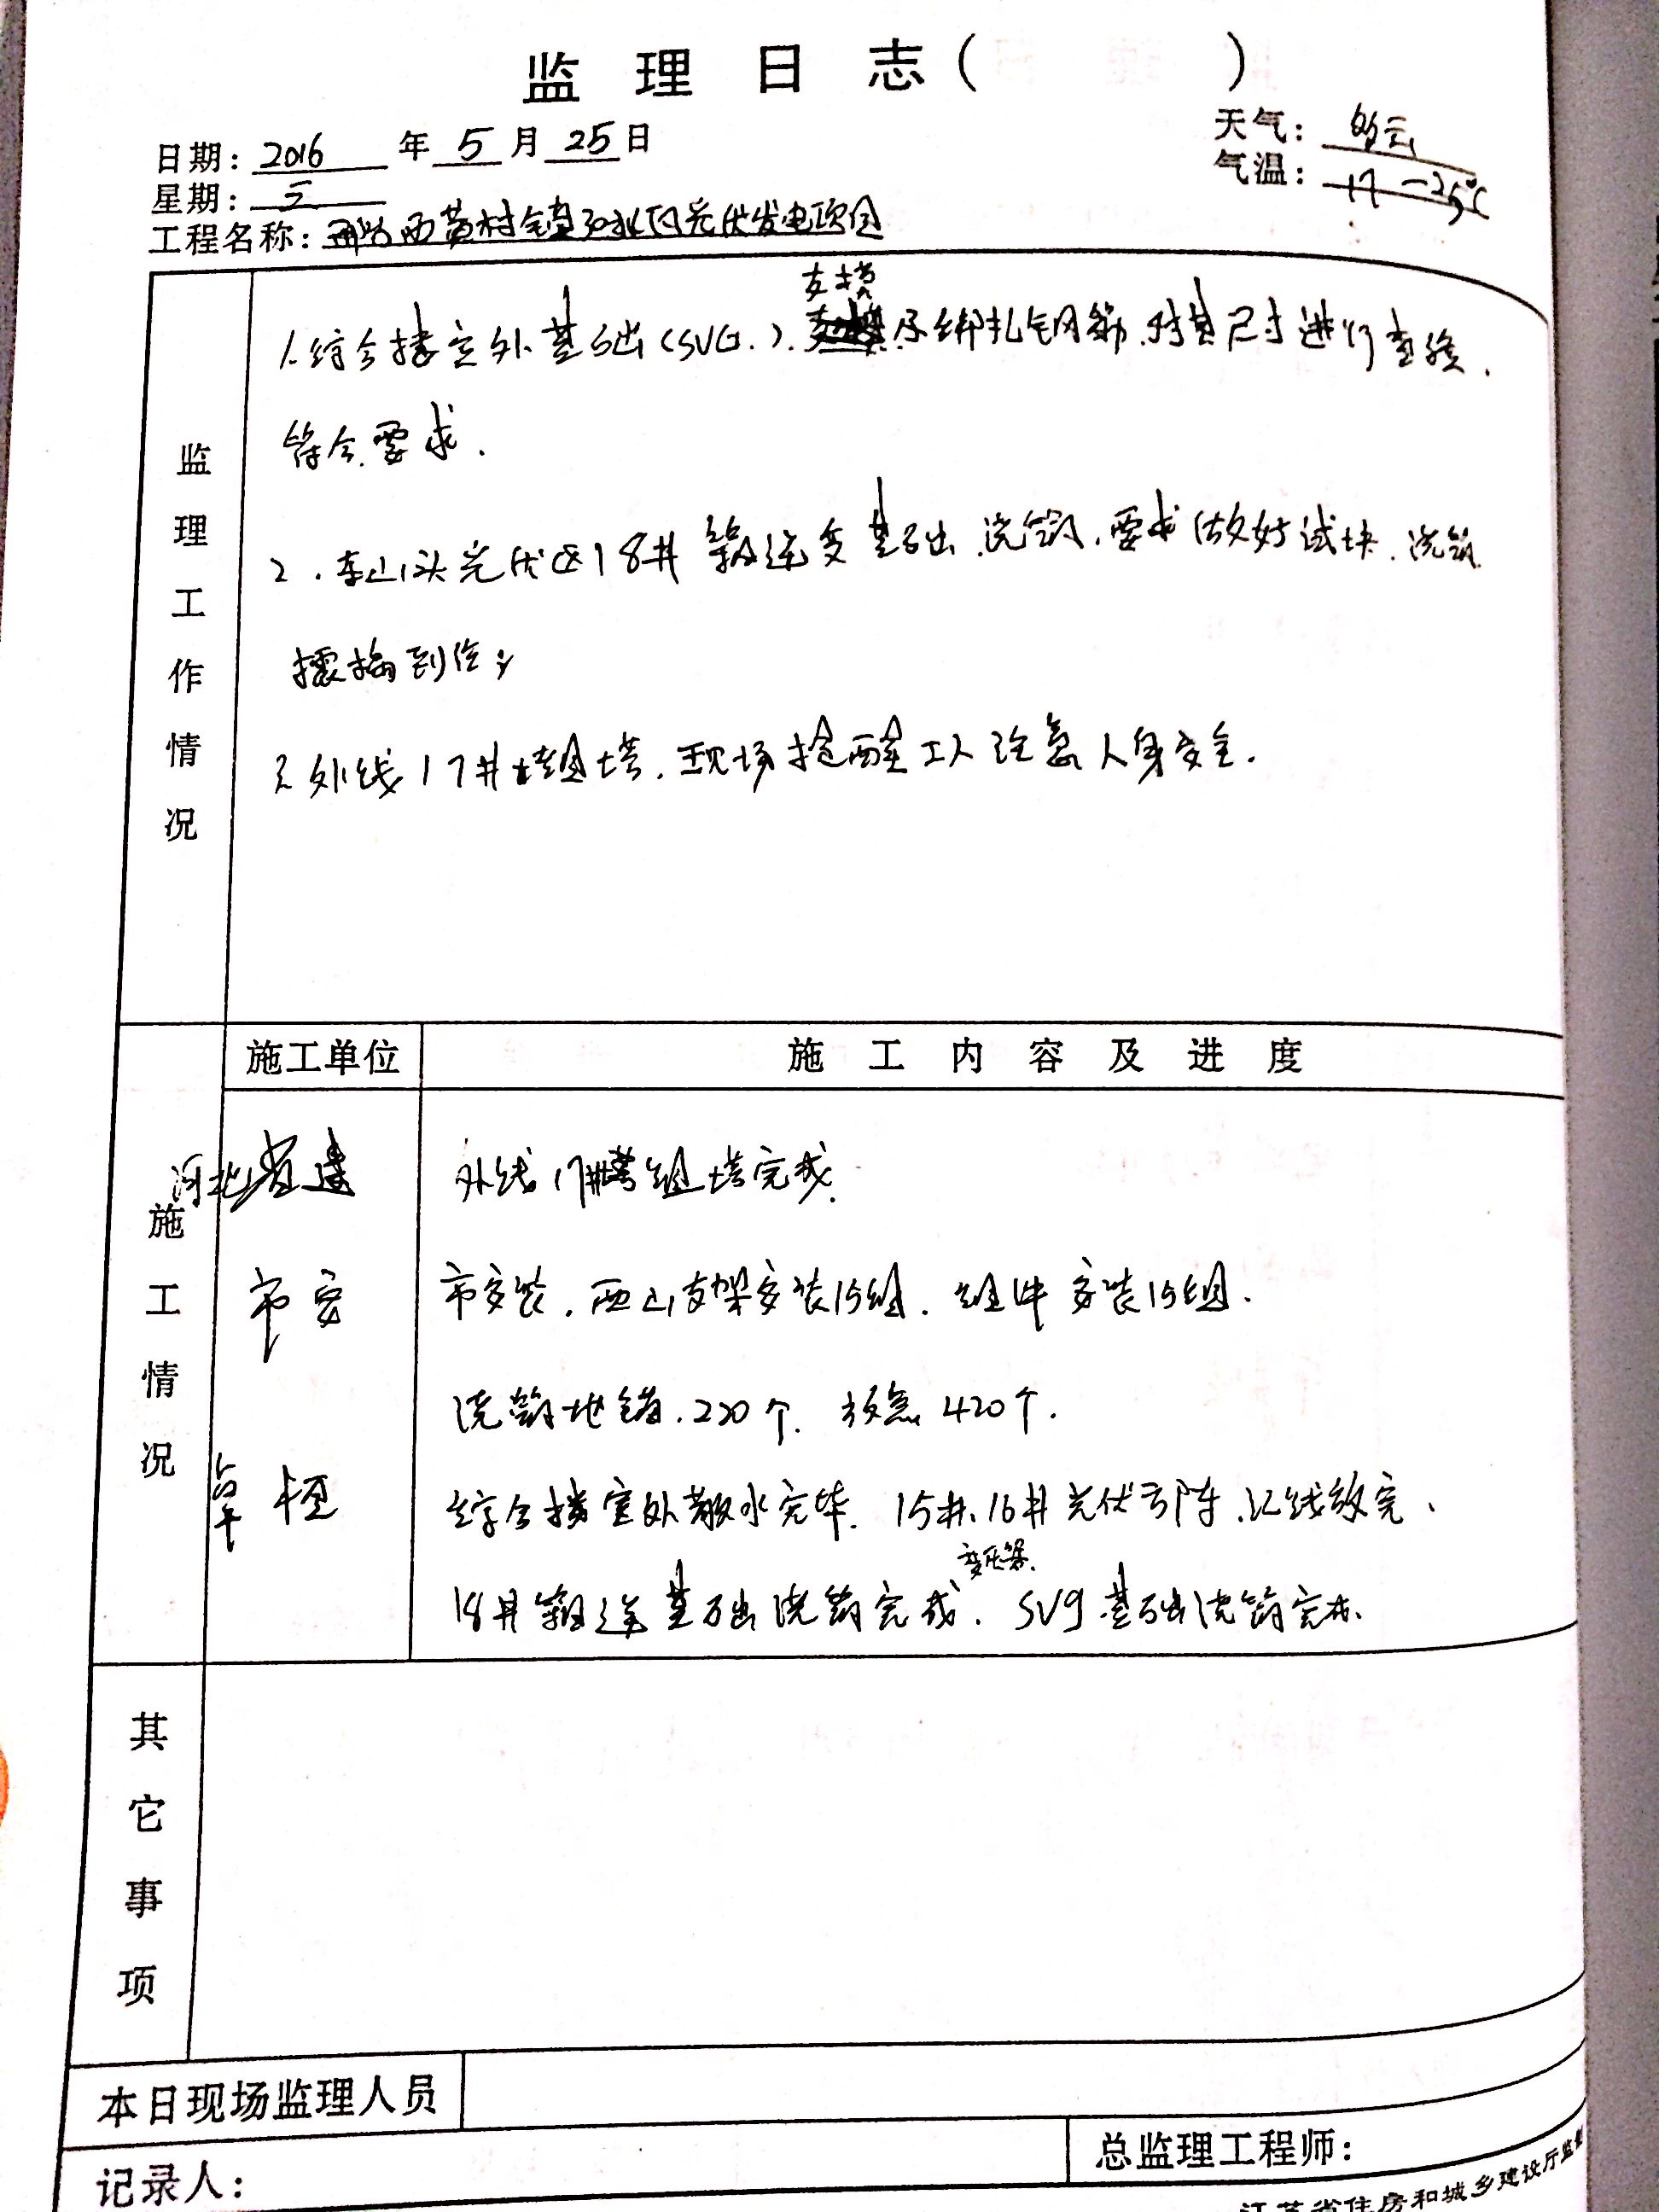 监理日志( )
日期: 2016 年 5 月 25 日
天气: 多云
星期: 三
气温: 17-25℃
工程名称: 西黄村镇 光伏发电项目
监理工作情况
支模
1.综合楼室外基础(SVG.). 及绑扎钢筋.对其尺寸进行查验.
符合要求.
2.东山头光伏区18# 箱逆变基础.浇筑.要求做好试块.浇筑
振捣到位;
3.外线17#塔组塔.现场提醒工人注意人身安全.
施工情况
施工单位 施工内容及进度
河北省建 外线17#塔组塔完成.
市安 市安装.西山支架安装15组.组件安装15组.
浇筑地锚.220个. 420个.
卓恒 综合楼室外散水完毕. 15#.16#光伏方阵.汇线敛完.
变压器.
18#箱逆基础浇筑完成. SVG基础浇筑完成.
其它事项
本日现场监理人员
总监理工程师:
记录人:
江苏省住房和城乡建设厅监制